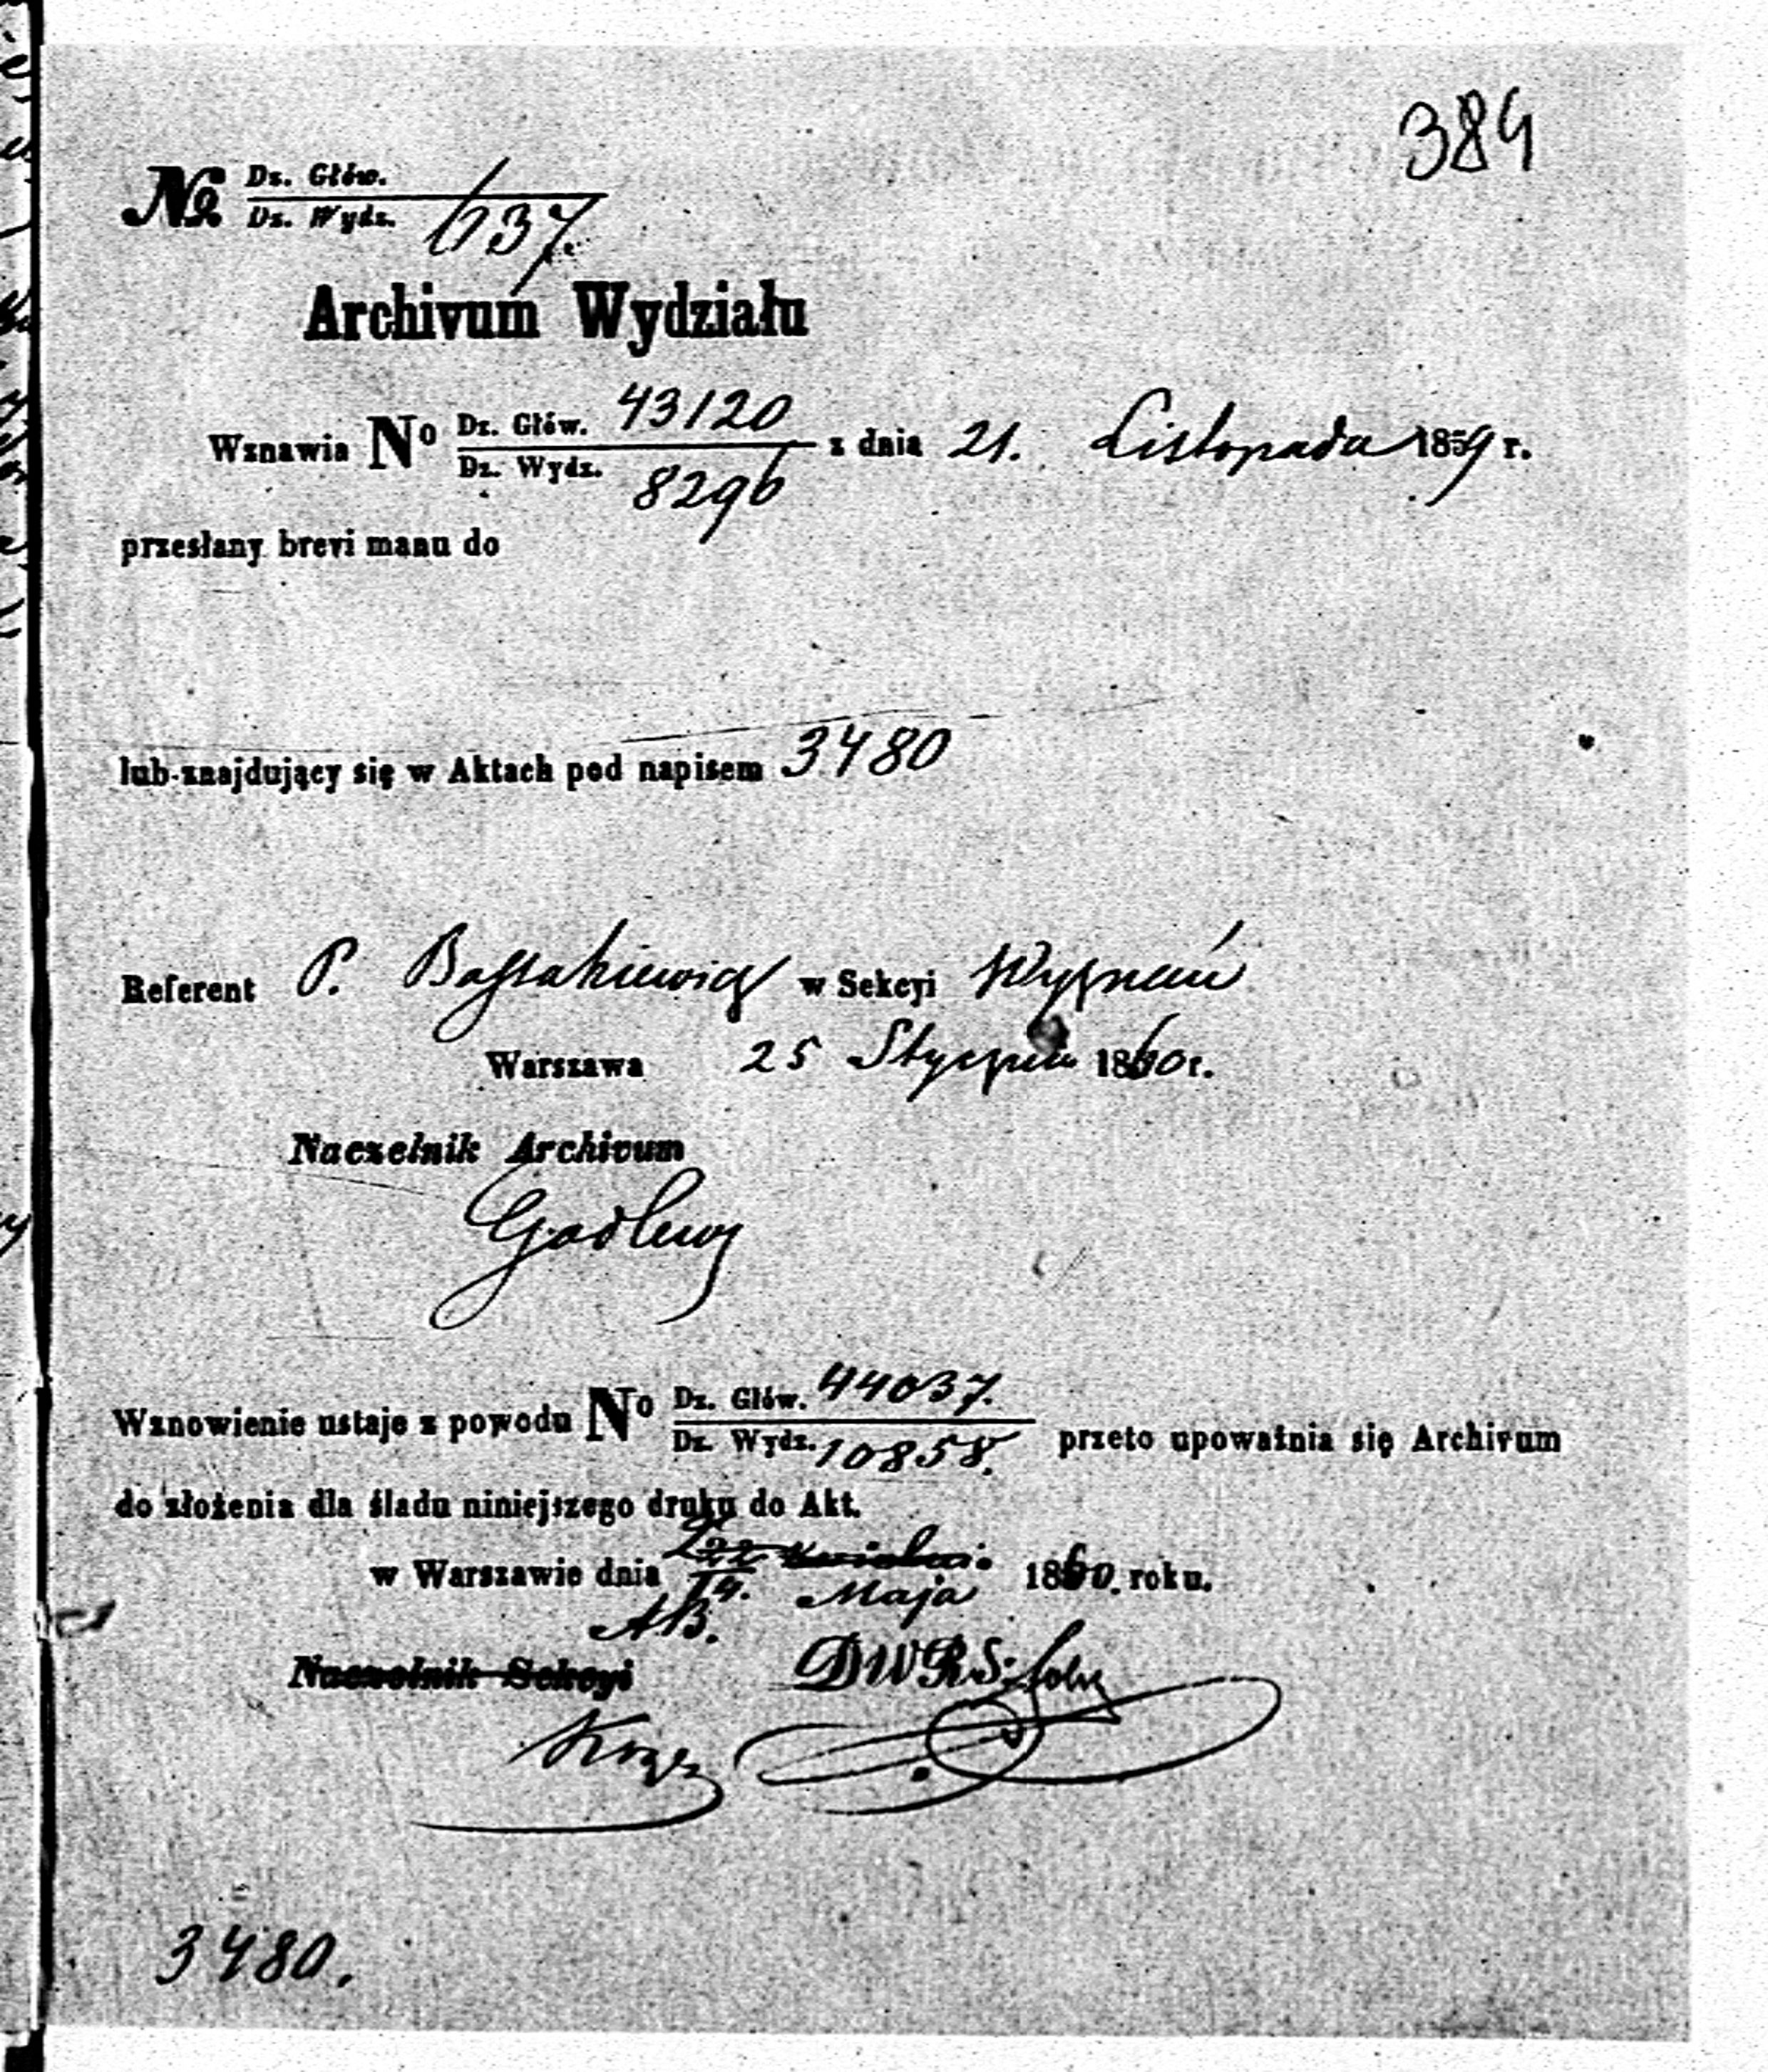 384
№ Dz. Głów.
Dz. Wydz. 637
Archivum Wydziału
Wznawia No Dz. Głów. 43120 z dnia 21. Listopada 1859 r.
Dz. Wydz. 8296
przesłany brevi manu do
lub znajdujący się w Aktach pod napisem 3480
Referent P. w Sekcyi Wyznań
Warszawa 25 Stycznia 1860 r.
Naczelnik Archivum
Wznowienie ustaje z powodu No Dz. Głów. 44037. przeto upoważnia się Archivum
Dz. Wydz. 10858.
do złożenia dla śladu niniejszego druku do Akt.
w Warszawie dnia Kwietnia 1860. roku.
14. Maja
AB.
Naczelnik Sekcyi DWRS.
3480.